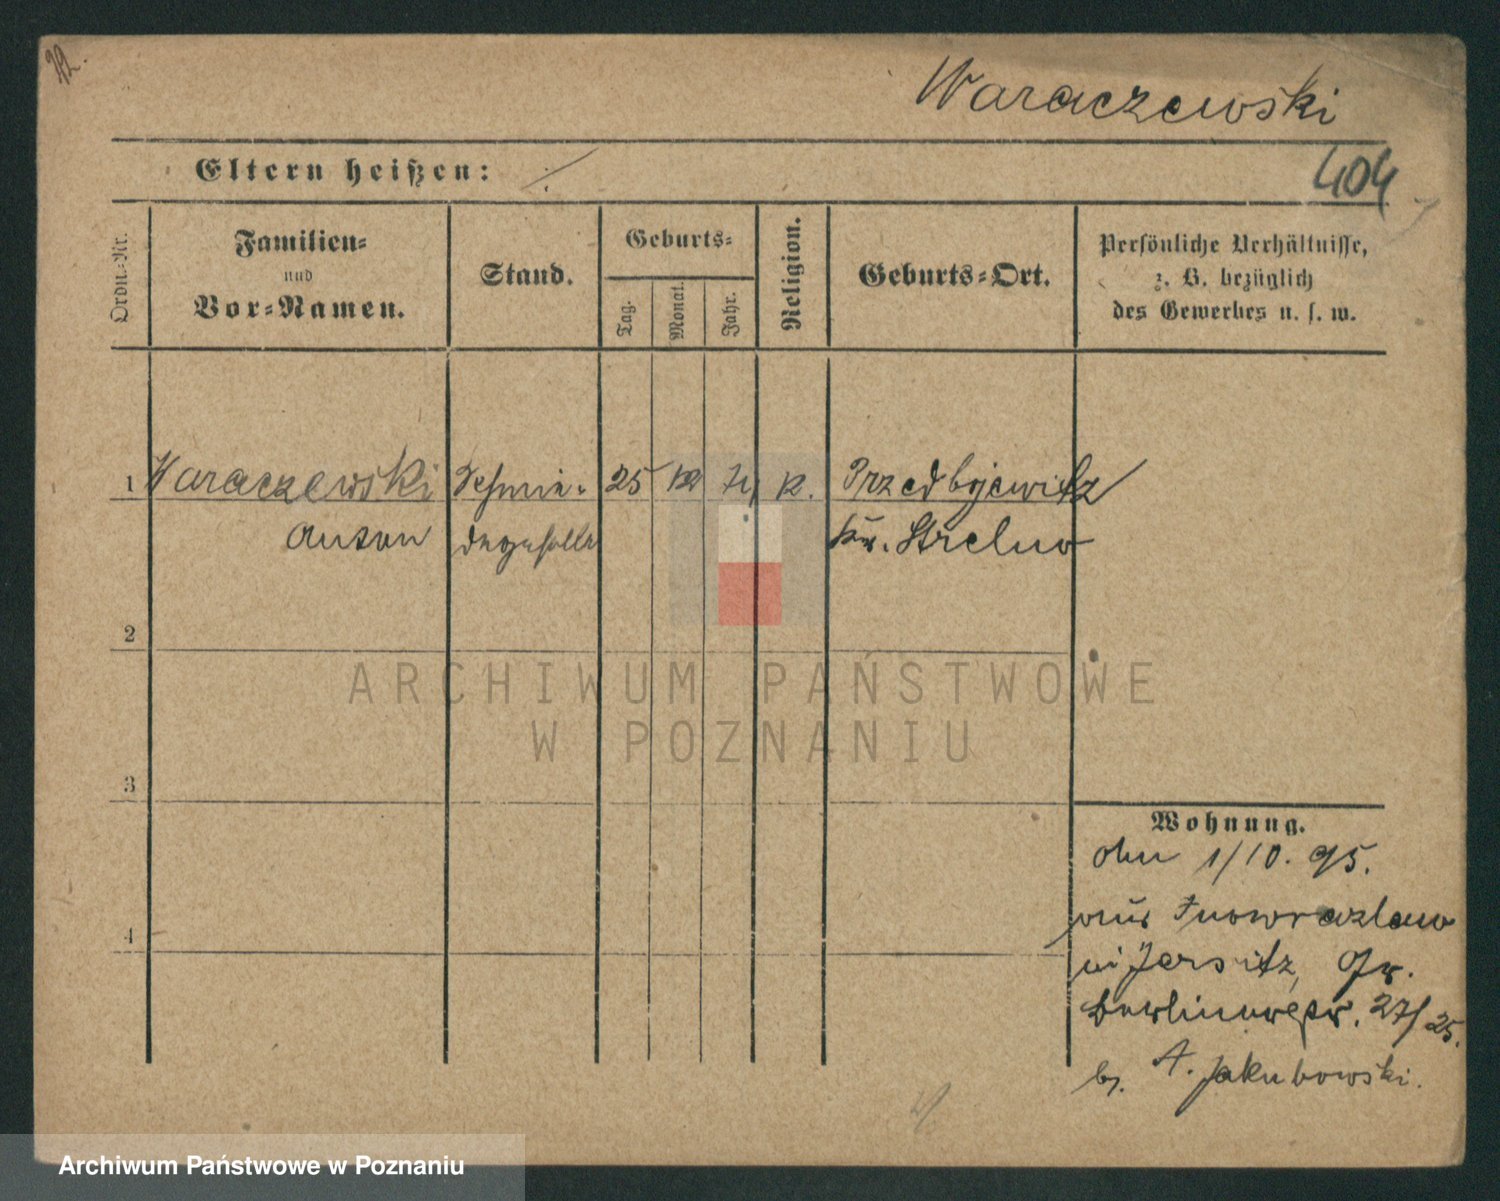 Waraczewski
404
Eltern heißen:
Ordn.-Nr.
Familien-
und
Vor-Namen.
Stand.
Geburts-
Tag.
Monat.
Jahr.
Religion.
Geburts-Ort.
Persönliche Verhältnisse,
z. B. bezüglich
des Gewerbes u. s. w.
1 Waraczewski Schmie- 25 K. Przedbojewitz
Anton degeselle Kr. Strelno
2
3
4
Wohnung.
1/10. 95.
aus Inowrazlaw
in Jersitz, Gr.
Berlinerstr. 27/25.
b. A. Jakubowski.
ARCHIWUM PAŃSTWOWE
W POZNANIU
Archiwum Państwowe w Poznaniu